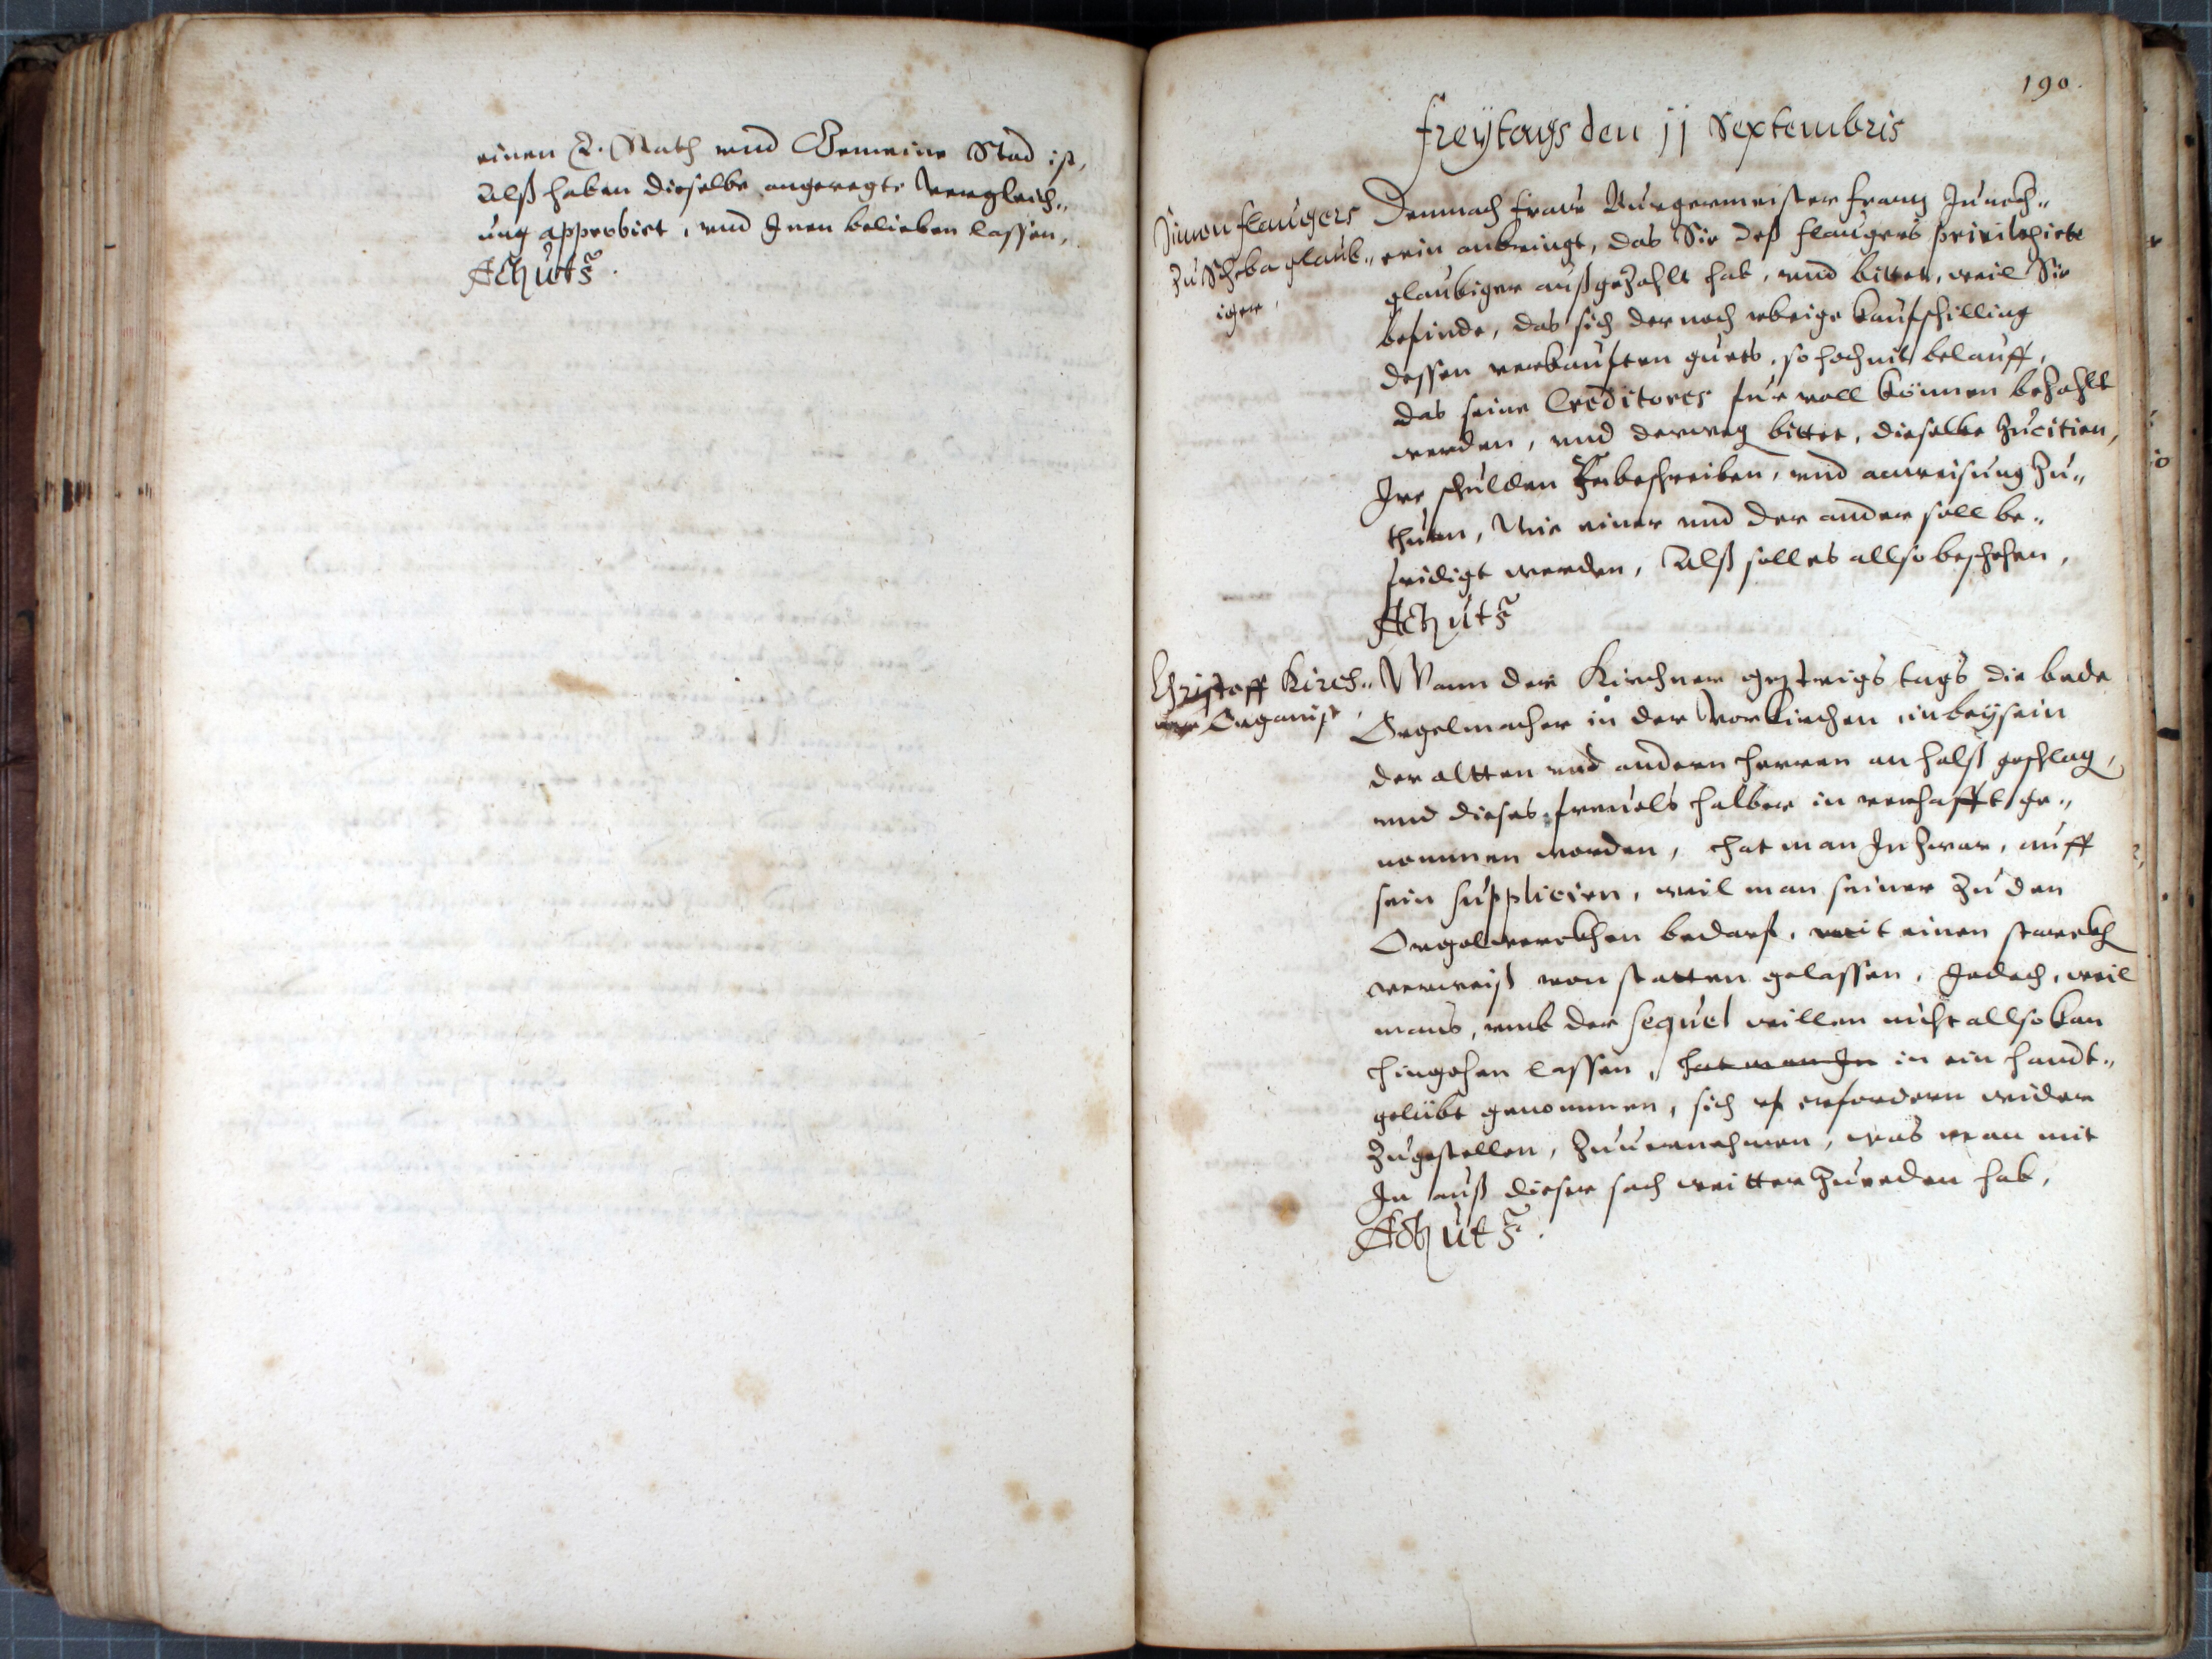 einen E. Rath vnd Gemeine Stad ist,
Alß haben dieselbe angeregte Vergleich„
ung approbirt, vnd Inen belieben lassen,
Act. ut s.
190.
Freÿtags den 11 Septembris
Simon Flaŭgers
zŭ Scheba glaŭb„
iger,
Demnach Fraw Bŭrgermeister Frantz Jŭnoch„
erin anbringt, das Sie deß Flaŭgers privilegirte
glaŭbiger aŭßgezahlt hab, vnd bittet, weil Sie
befinde, das sich der noch vbrige kaŭfschilling
dessen verkaŭften gŭets, so hoch nit belaŭff,
das seine Creditores fŭr voll können bezahlt
werden, vnd derweg bittet, dieselbe zŭcitirn,
Ire schŭlden zubeschreiben, vnd anweisŭng zŭ„
thŭen, Wie einer vnd der ander soll be„
fridigt werden, Alß soll es allso beschehen,
Act. ut s.
Christoff Kirch„
ner Organist
Wann der Kirchner gestrigs tags die bede
Orgelmacher in der Vorkirchen in beÿsein
der altten vnd andern herren an halß geschlag,
vnd dieses freuels halber in verhafft ge„
nommen worden, hat man In zwar, aŭff
sein sŭpplicirn, weil man seiner zŭ den
Orgelwerckhen bedarf, mit einen starckh
verweiß von statten gelassen, Jedoch, weil
mans, vmb der sequel willen nicht allso kan
hingehen lassen, hat man In in ein handt„
gelübt genommen, sich vf erfordern wider
zŭgestellen, zŭuernehmen, was man mit
In aŭß dieser sach weitter zŭreden hab,
Act. ut s.